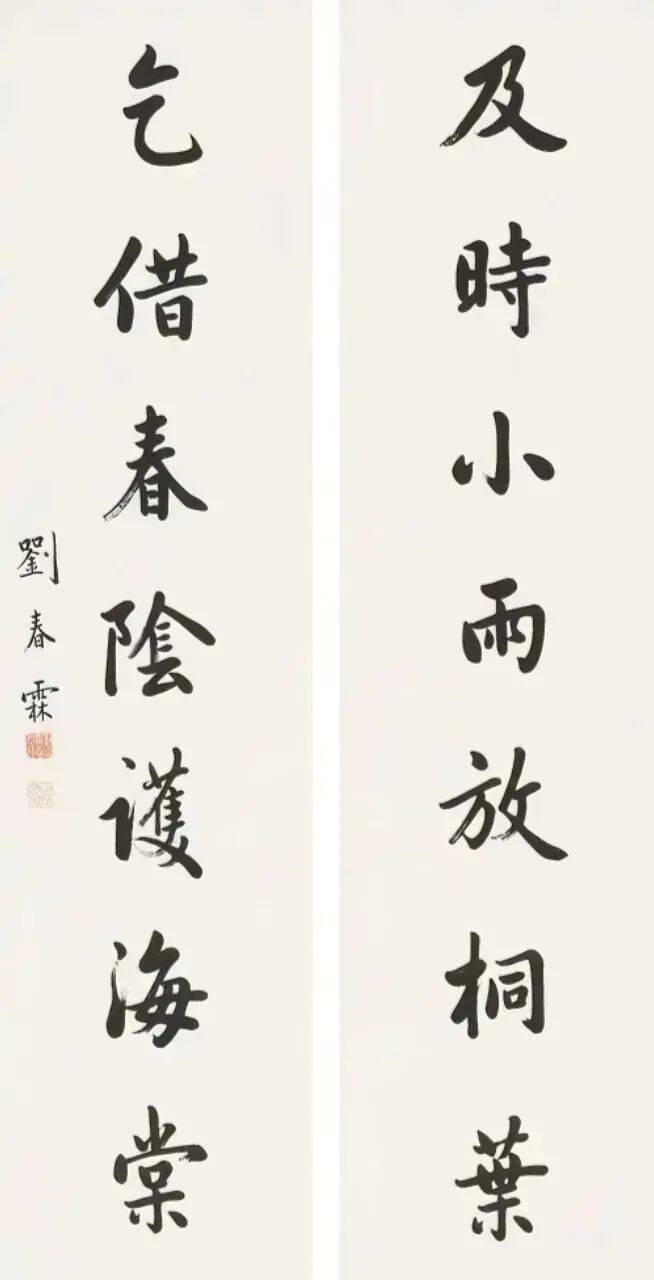 及時小雨放桐葉
乞借春陰護海棠
劉春霖